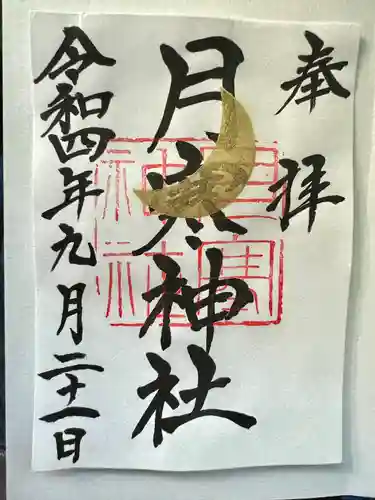 奉拝
月寒神社
月寒
神社
令和四年九月二十一日